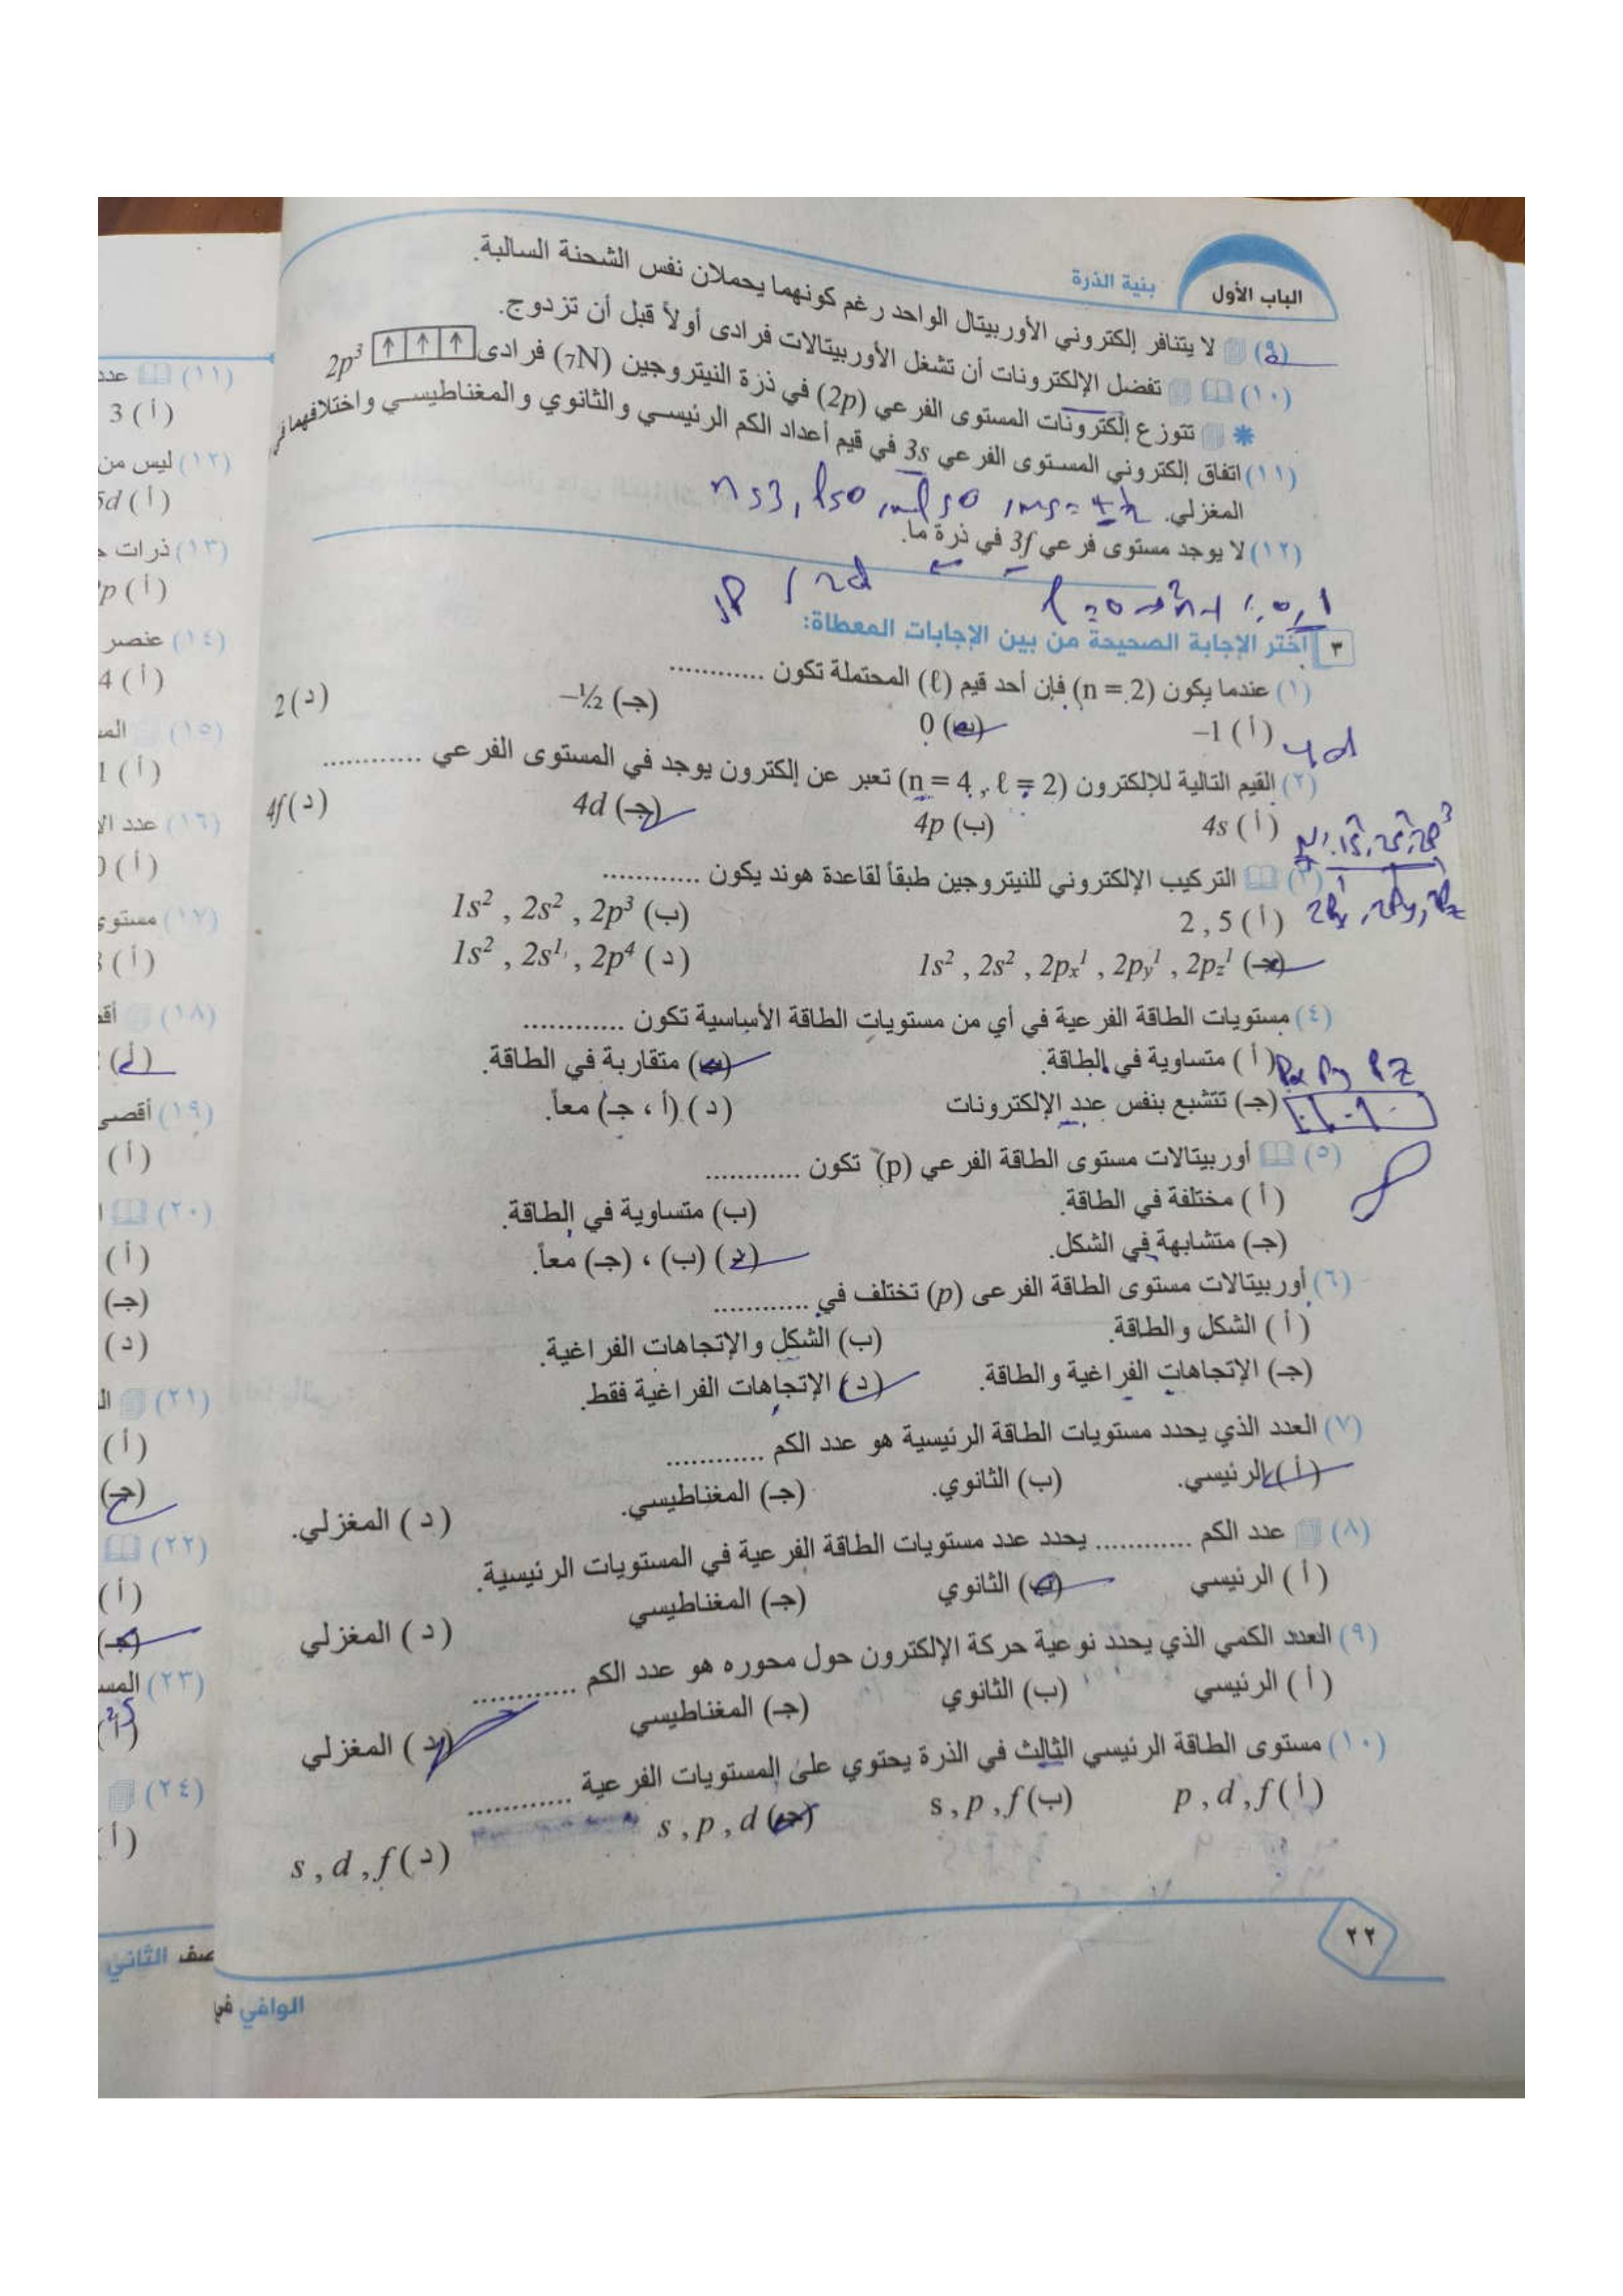 الباب الأول
بنية الذرة
(٩) لا يتنافر إلكتروني الأوربيتال الواحد رغم كونهما يحملان نفس الشحنة السالبة.
(١٠) تفضل الإلكترونات أن تشغل الأوربيتالات فرادى أولاً قبل أن تزدوج.
* تتوزع إلكترونات المستوى الفرعي (2p) في ذرة النيتروجين (₇N) فرادى ↑ ↑ ↑ 2p³
(١١) اتفاق إلكتروني المستوى الفرعي 3s في قيم أعداد الكم الرئيسي والثانوي والمغناطيسي واختلافهما في
المغزلي.
(١٢) لا يوجد مستوى فرعي 3f في ذرة ما.
2d
٣ اختر الإجابة الصحيحة من بين الإجابات المعطاة:
(١) عندما يكون (n = 2) فإن أحد قيم (ℓ) المحتملة تكون ............
(أ) 1– (ب) 0 (جـ) ½– (د) 2
4d
(٢) القيم التالية للإلكترون (n = 4 , ℓ = 2) تعبر عن إلكترون يوجد في المستوى الفرعي ............
(أ) 4s (ب) 4p (جـ) 4d (د) 4f
(٣) التركيب الإلكتروني للنيتروجين طبقاً لقاعدة هوند يكون ............
(أ) 2 , 5 (ب) 1s² , 2s² , 2p³
(جـ) 1s² , 2s² , 2pₓ¹ , 2pᵧ¹ , 2p_z¹ (د) 1s² , 2s¹ , 2p⁴
(٤) مستويات الطاقة الفرعية في أي من مستويات الطاقة الأساسية تكون ............
(أ) متساوية في الطاقة. (ب) متقاربة في الطاقة.
Px Py Pz
(جـ) تتشبع بنفس عدد الإلكترونات (د) (أ ، جـ) معاً.
(٥) أوربيتالات مستوى الطاقة الفرعي (p) تكون ............
(أ) مختلفة في الطاقة. (ب) متساوية في الطاقة.
(جـ) متشابهة في الشكل. (د) (ب) ، (جـ) معاً.
(٦) أوربيتالات مستوى الطاقة الفرعى (p) تختلف في ............
(أ) الشكل والطاقة. (ب) الشكل والإتجاهات الفراغية.
(جـ) الإتجاهات الفراغية والطاقة. (د) الإتجاهات الفراغية فقط.
(٧) العدد الذي يحدد مستويات الطاقة الرئيسية هو عدد الكم ............
(أ) الرئيسي. (ب) الثانوي. (جـ) المغناطيسي. (د) المغزلي.
(٨) عدد الكم ............ يحدد عدد مستويات الطاقة الفرعية في المستويات الرئيسية.
(أ) الرئيسي (ب) الثانوي (جـ) المغناطيسي (د) المغزلي
(٩) العدد الكمي الذي يحدد نوعية حركة الإلكترون حول محوره هو عدد الكم ............
(أ) الرئيسي (ب) الثانوي (جـ) المغناطيسي (د) المغزلي
(١٠) مستوى الطاقة الرئيسي الثالث في الذرة يحتوي على المستويات الفرعية ............
(أ) p , d , f (ب) s , p , f (جـ) s , p , d (د) s , d , f
٢٢
(١١) عدد
(أ) 3
(١٢) ليس من
(أ) 5d
(١٣) ذرات
(أ)
(١٤) عنصر
(أ) 4
(١٥)
(أ) 1
(١٦) عدد
(أ)
(١٧) مستوى
(أ)
(١٨)
(أ)
(١٩) أقصى
(أ)
(٢٠)
(أ)
(جـ)
(د)
(٢١)
(أ)
(جـ)
(٢٢)
(أ)
(جـ)
(٢٣)
(أ)
(٢٤)
(أ)
صف الثاني
الوافي في